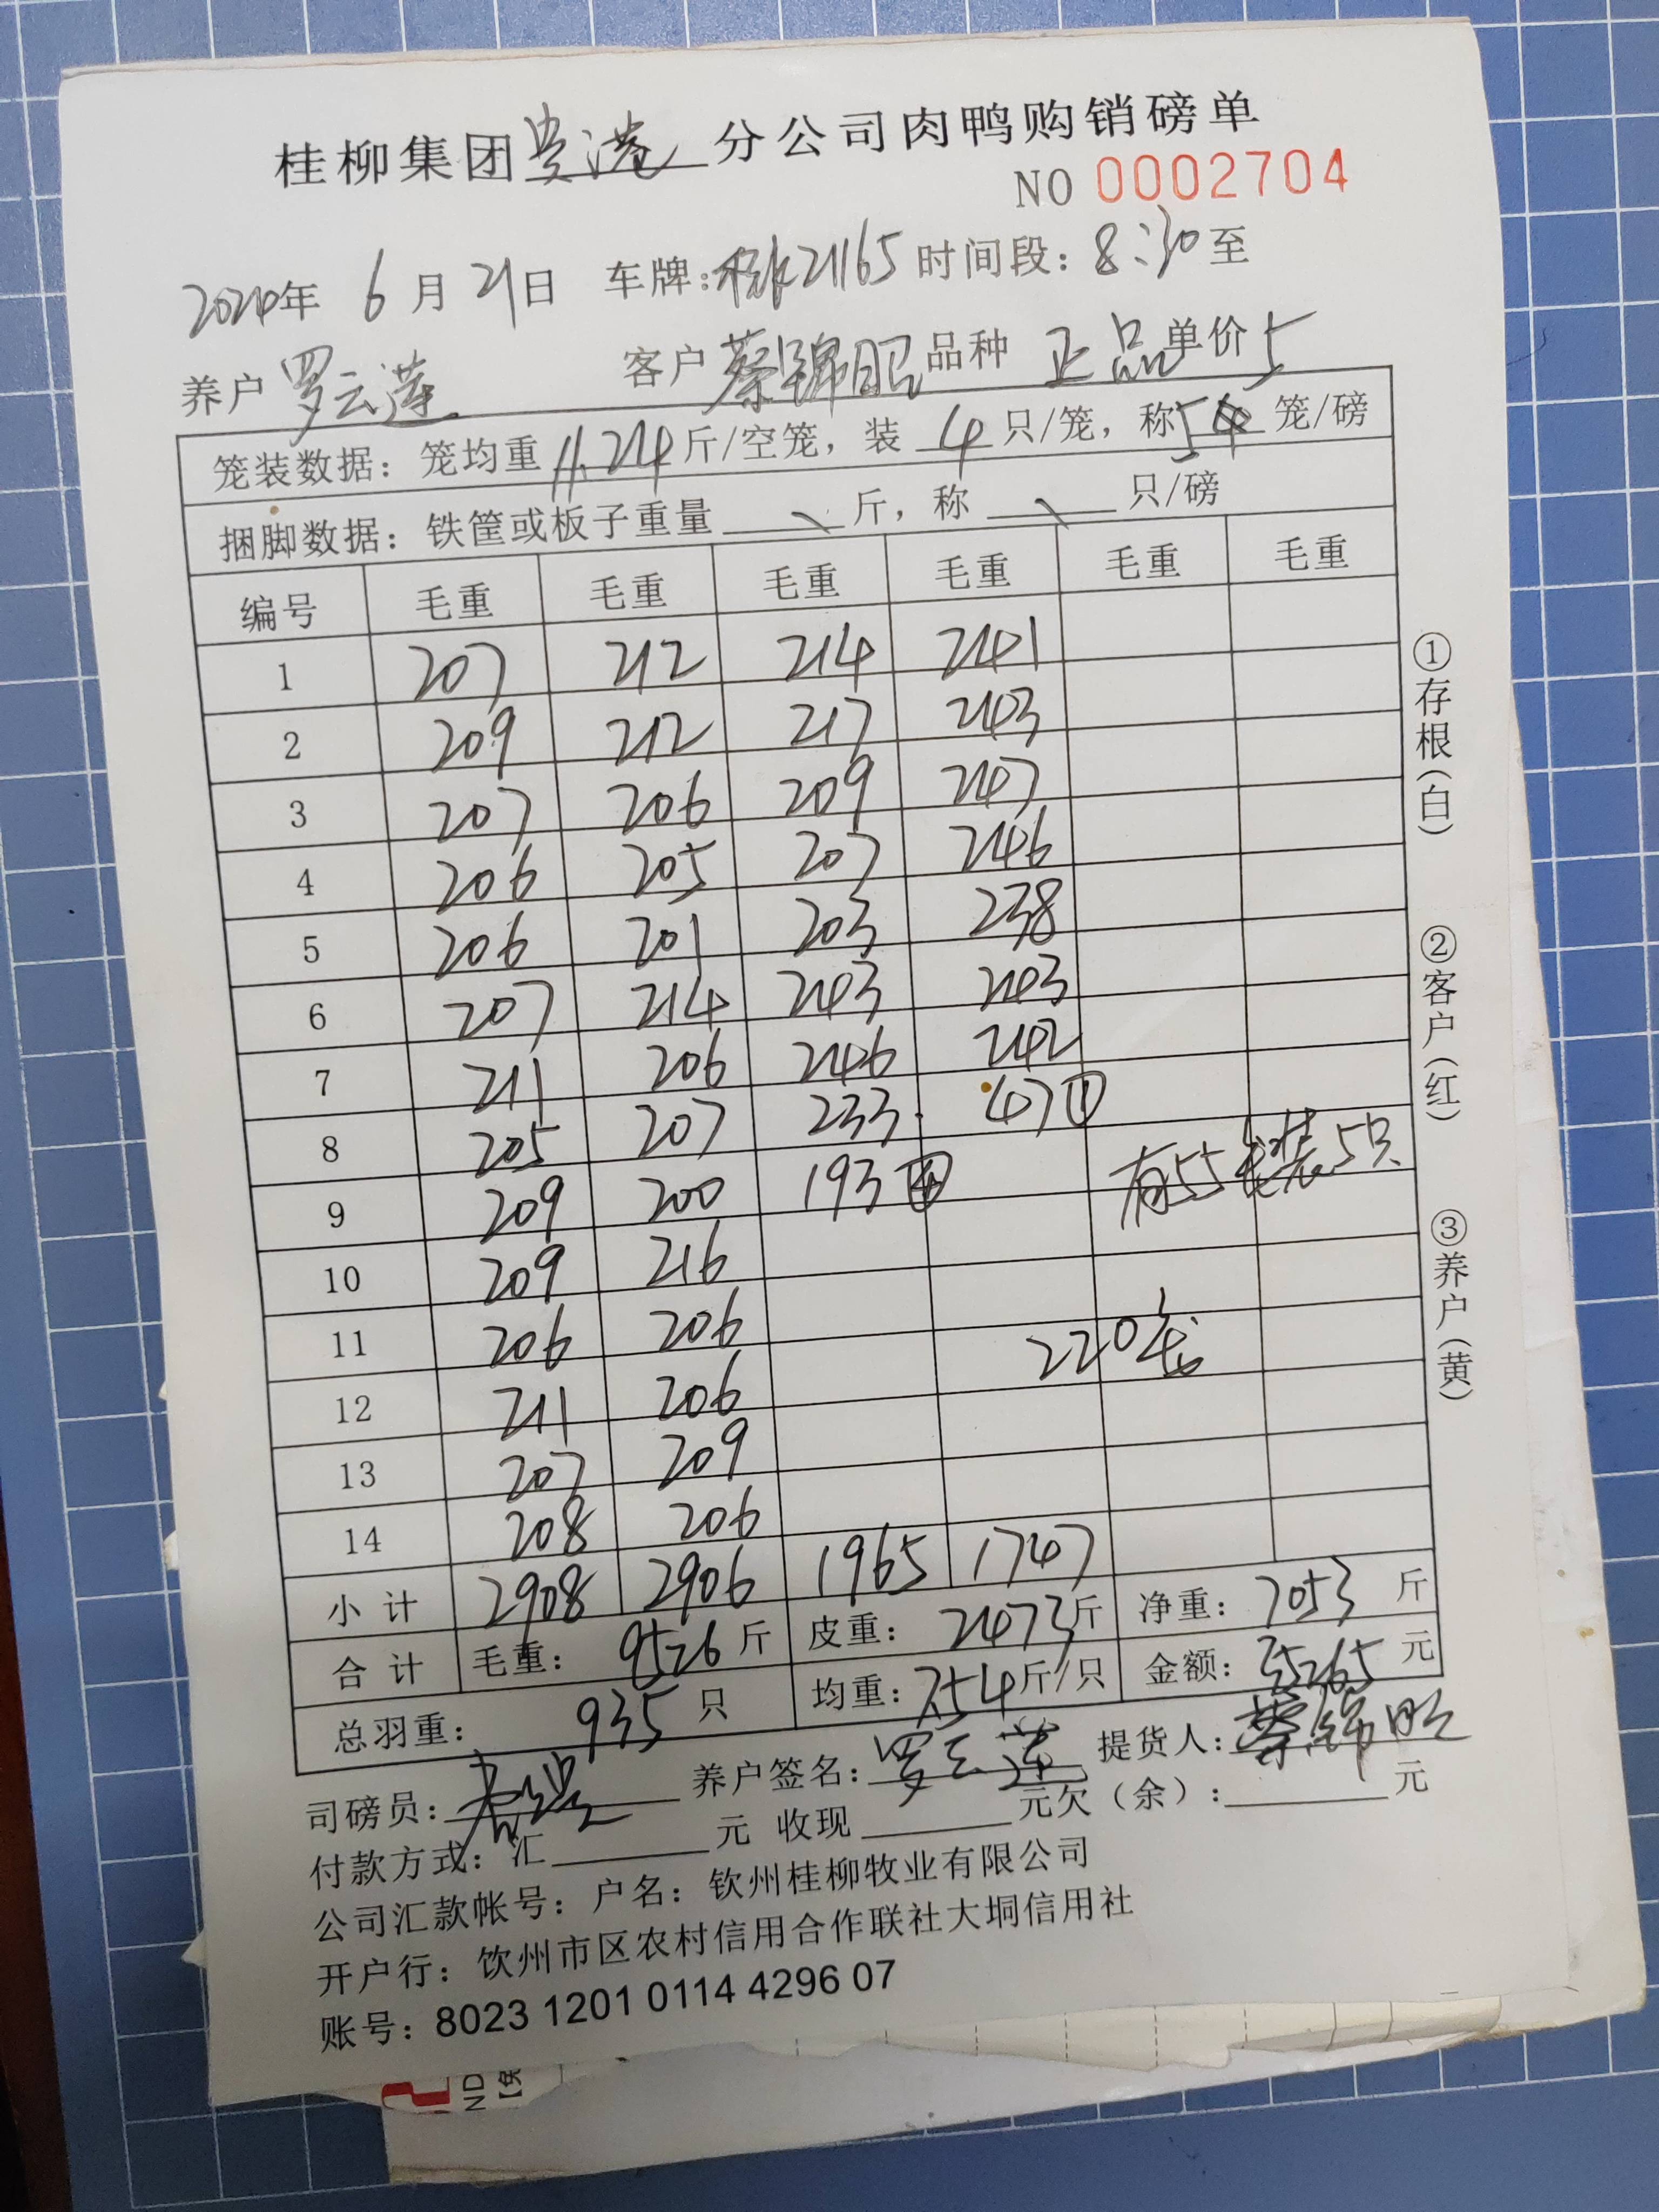 桂柳集团贵港分公司肉鸭购销磅单
NO 0002704
2024年 6月 21日 车牌:桂K21165 时间段: 8:30至
养户 罗云莲 客户 蔡锦昭 品种 正品 单价 5
笼装数据: 笼均重 11.24 斤/空笼, 装 4 只/笼, 称 5 笼/磅
捆脚数据: 铁筐或板子重量 \ 斤, 称 \ 只/磅
编号 毛重 毛重 毛重 毛重 毛重 毛重
1 207 212 214 241
2 209 212 217 243
3 207 206 209 247
4 206 205 207 246
5 206 201 203 238
6 207 214 243 243
7 211 206 246 242
8 205 207 233. 47①
9 209 200 193④ 有55笼装5只
10 209 216
11 206 206 220笼
12 211 206
13 207 209
14 208 206
小计 2908 2906 1965 1747
合计 毛重: 9526 斤 皮重: 2473斤 净重: 7053 斤
总羽重: 935 只 均重: 7.54斤/只 金额: 35265 元
司磅员: 养户签名: 罗云莲 提货人: 蔡锦昭
付款方式: 汇 元 收现 元欠(余): 元
公司汇款帐号: 户名: 钦州桂柳牧业有限公司
开户行: 钦州市区农村信用合作联社大垌信用社
账号: 8023 1201 0114 4296 07
①存根(白)
②客户(红)
③养户(黄)
ND